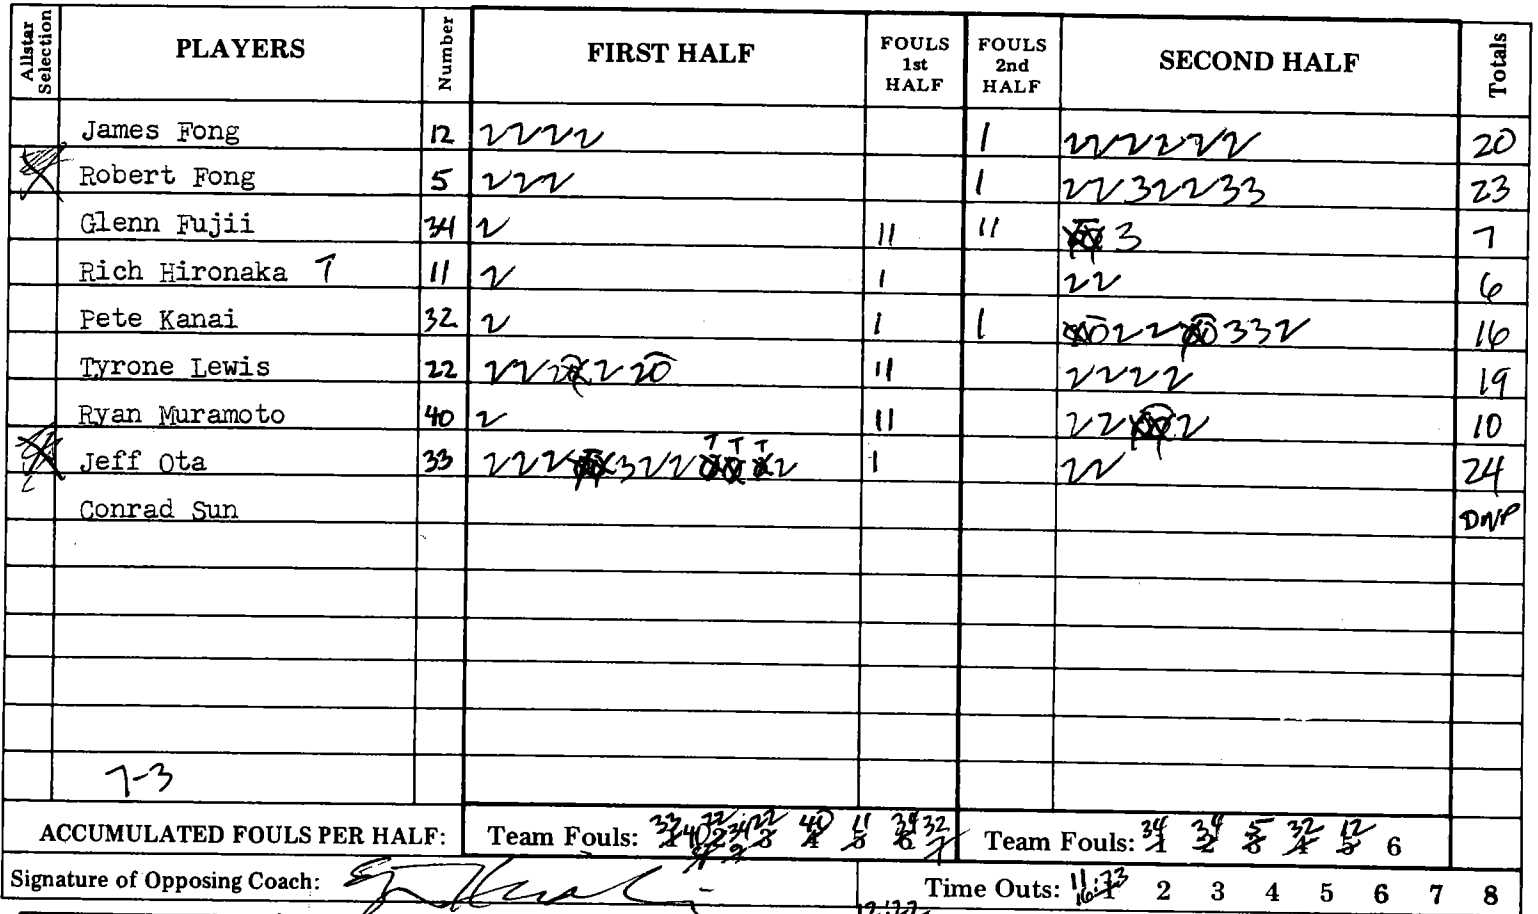 Allstar Selection PLAYERS Number FIRST HALF FOULS 1st HALF FOULS 2nd HALF SECOND HALF Totals
James Fong 12 2222 1 222222 20
Robert Fong 5 222 1 22322233 23
Glenn Fujii 34 2 11 11 3 7
Rich Hironaka 7 11 2 1 22 6
Pete Kanai 32 2 1 1 22 332 16
Tyrone Lewis 22 22 2 2 11 2222 19
Ryan Muramoto 40 2 11 22 2 10
Jeff Ota 33 222 322 T T T 2 1 22 24
Conrad Sun DNP
7-3
ACCUMULATED FOULS PER HALF: Team Fouls: 33 40 22 34 22 40 11 34 32 Team Fouls: 34 34 5 32 12 6
Signature of Opposing Coach: Time Outs: 2 3 4 5 6 7 8